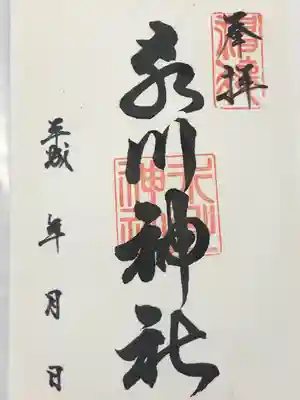 奉拝
氷川神社
氷川
神社
平成　年　月　日